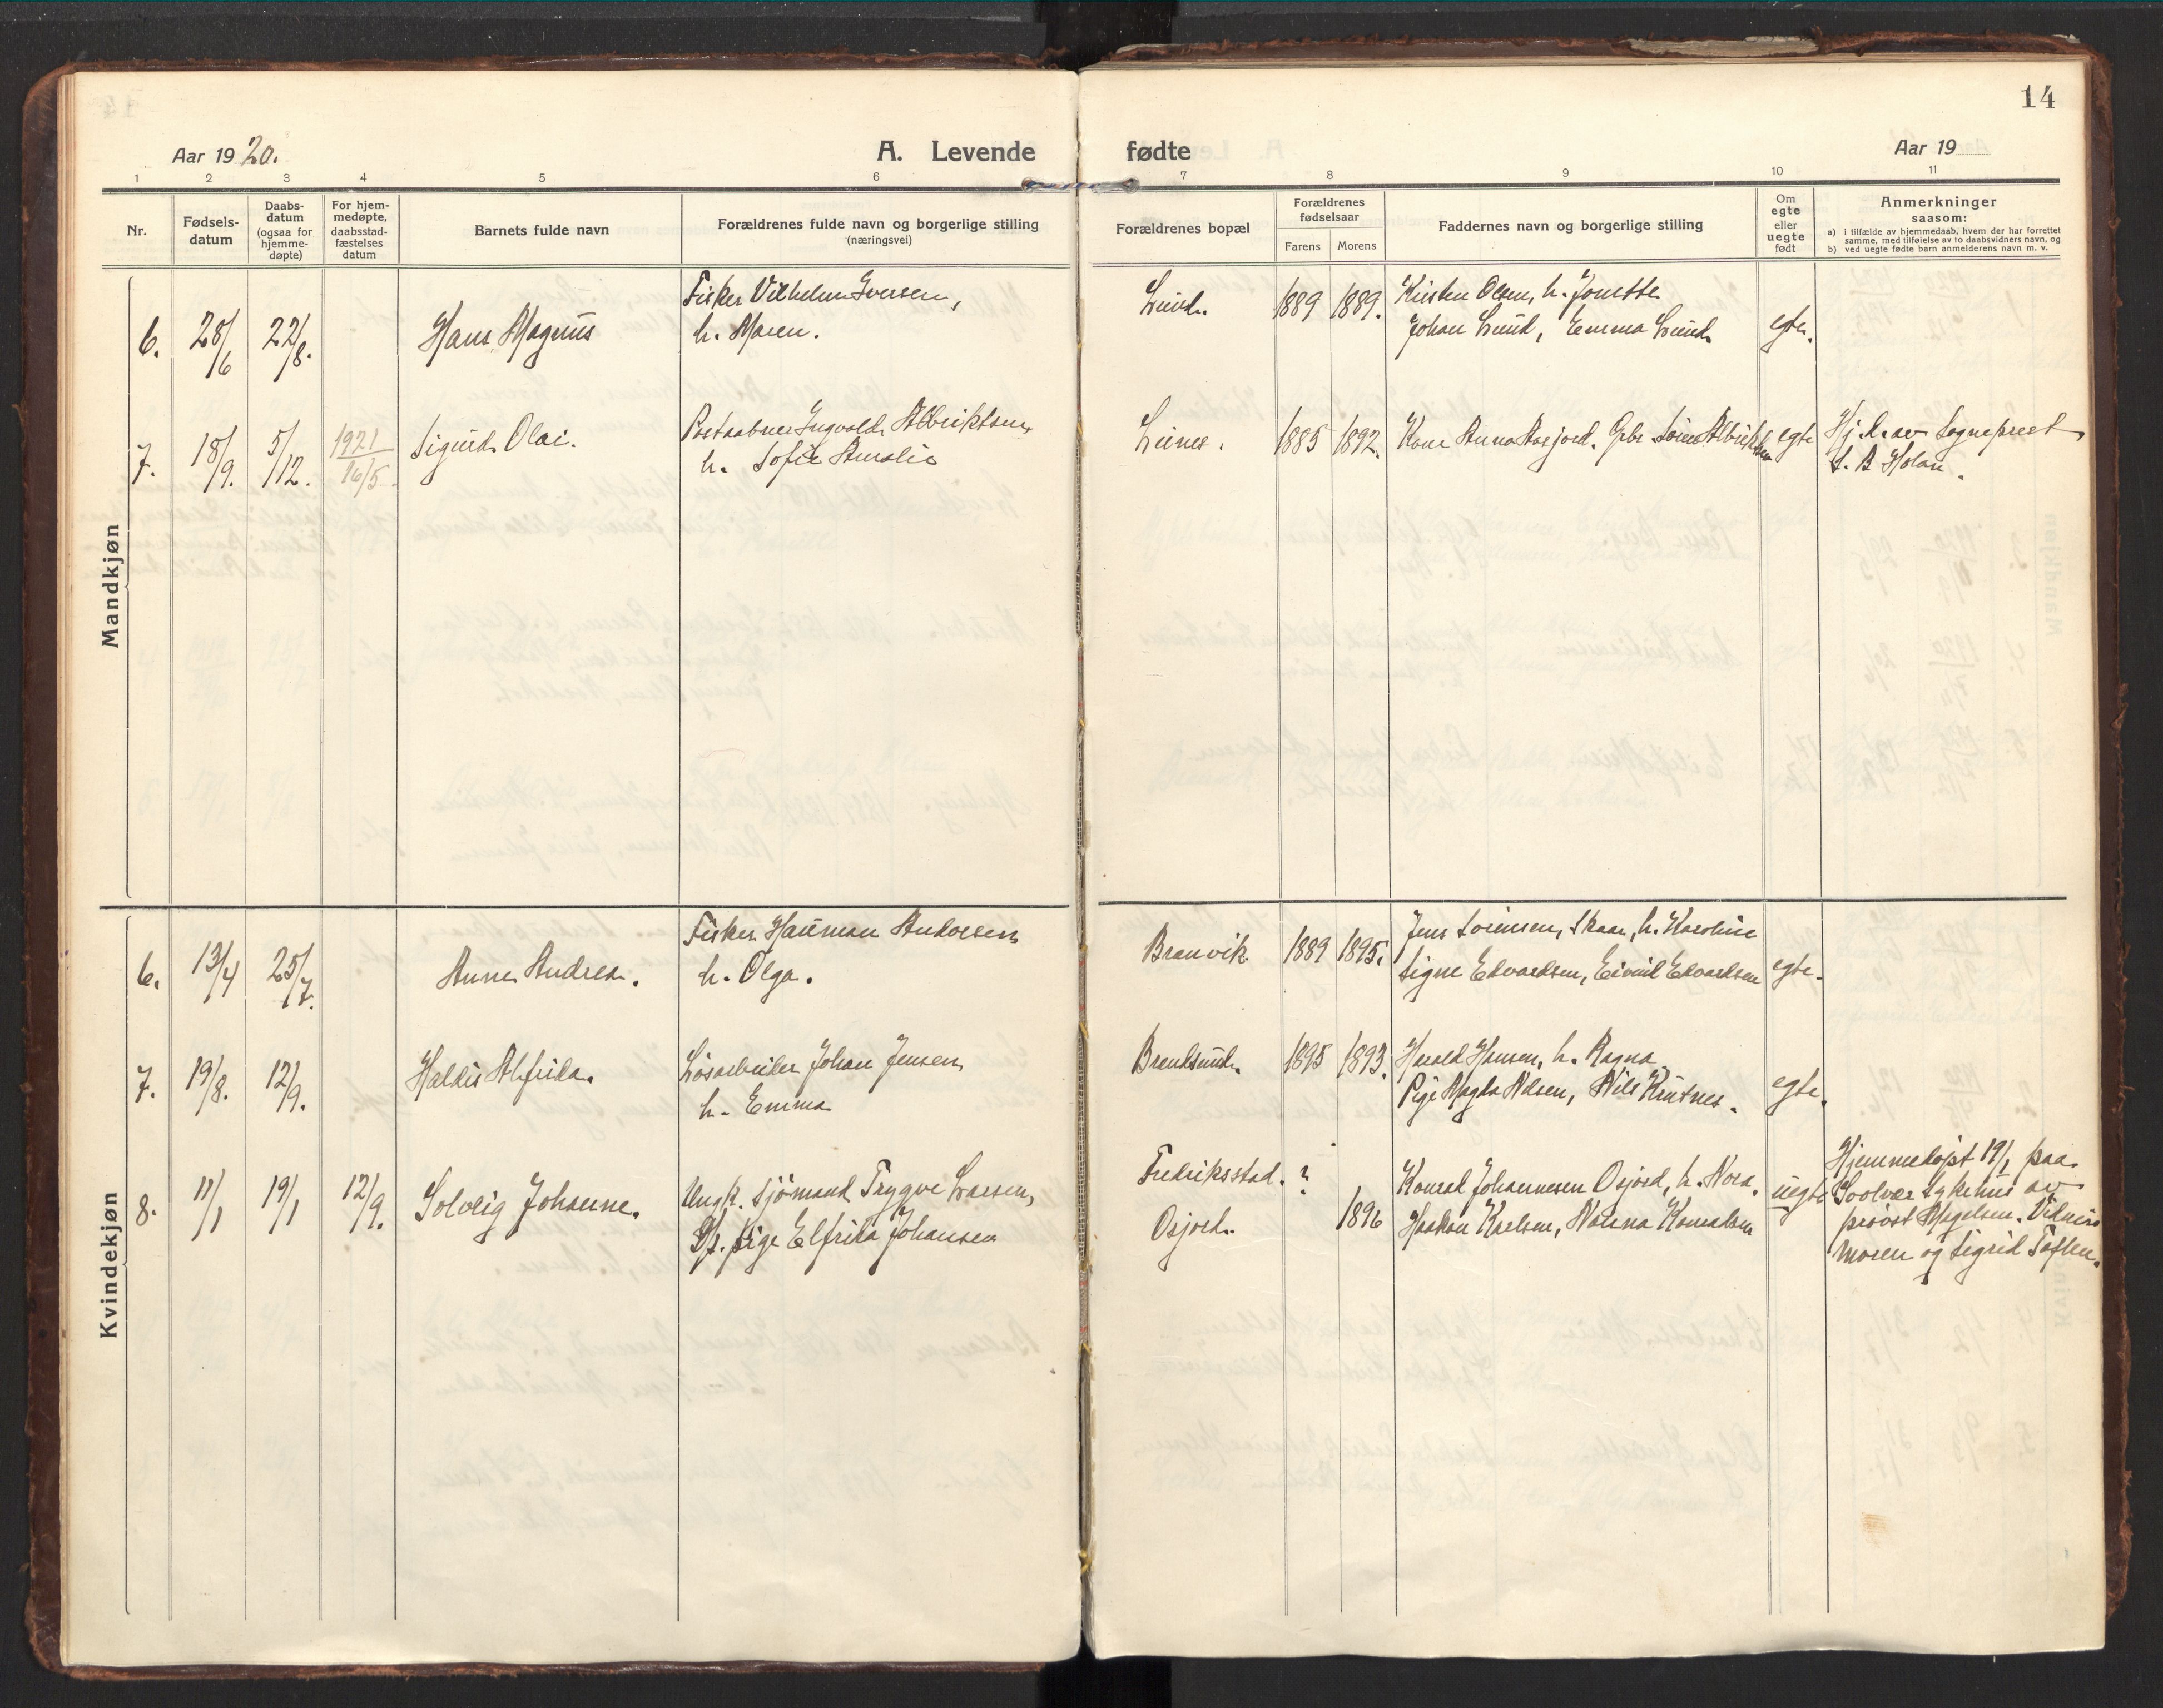 14
Aar 1920.
A. Levende fødte
Aar 19
1 2 3 4 5 6 7 8 9 10 11
Nr.
Fødsels-
datum
Daabs-
datum
(ogsaa for
hjemme-
døpte)
For hjem-
medøpte,
daabsstad-
fæstelses
datum
Barnets fulde navn
Forældrenes fulde navn og borgerlige stilling
(næringsvei)
Forældrenes bopæl
Forældrenes
fødselsaar
Farens Morens
Faddernes navn og borgerlige stilling
Om
egte
eller
uegte
født
Anmerkninger
saasom:
a) i tilfælde av hjemmedaab, hvem der har forrettet
samme, med tilføielse av to daabsvidners navn, og
b) ved uegte fødte barn anmelderens navn m. v.
Mandkjøn
6. 28/6 22/8. Hans Magnus
Fisker Vilhelm Iversen,
h. Maren.
Lund. 1889 1889.
Kristen Olsen, h. Jonette
Johan Lund, Emma Lund
egte.
7. 18/9. 5/12. 1921 16/5 Sigurd Olai.
Postaabner Ingvald Albriktsen
h. Sofie Amalie
1885 1892.
Kone Anna Aasjord. Gbr. Sören Albriktsen
egte
Hj. d. av Sogneprest
S. B. Holan.
Kvindekjøn
6. 13/4 25/7. Anne Andrea.
Fisker Hauman Andorsen
h. Olga.
Branvik 1889 1895.
Jens Sörensen, Skaar, h. Karoline
Signe Edvardsen, Eivind Edvardsen
egte.
7. 19/8. 12/9. Haldis Alfrida.
Lösarbeider Johan Jensen
h. Emma
Brendsund. 1895 1893.
Harald Hansen, h. Ragna
Pige Magda Nilsen, Nils
egte.
8. 11/1 19/1 12/9. Solveig Johanne.
Ungk. sjömand Trygve Larsen,
pige Elfrida Johansen
Fredriksstad. ?
Osjord. 1896
Konrad Johannesen Osjord, h. Nora.
Haakon Karlsen, Konradsen
uegte
Hjemmedöpt 19/1 paa
Svolvær sykehus av
provst Magelsen. Vidner:
moren og Sigrid Toften.